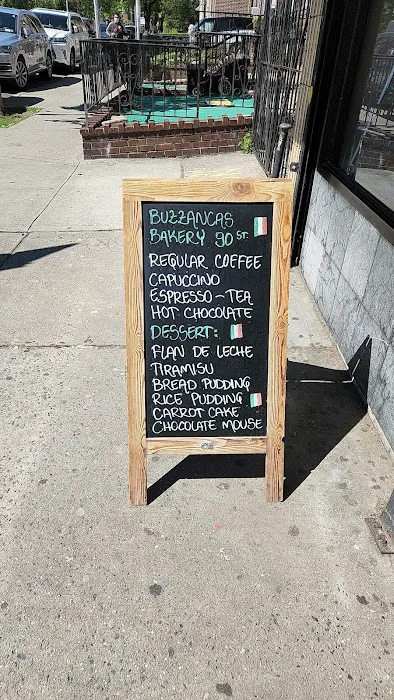 BUZZANCAS
BAKERY 90 ST.
REGULAR COFFEE
CAPUCCINO
ESPRESSO - TEA
HOT CHOCOLATE
DESSERT:
FLAN DE LECHE
TIRAMISU
BREAD PUDDING
RICE PUDDING
CARROT CAKE
CHOCOLATE MOUSE